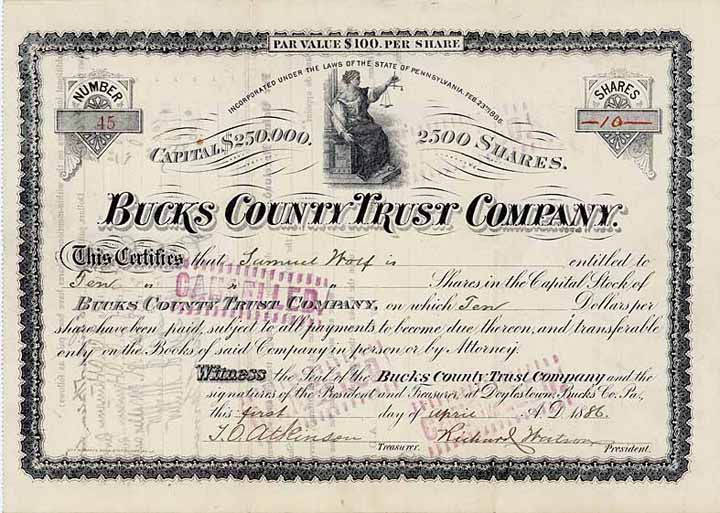 PAR VALUE $100. PER SHARE
INCORPORATED UNDER THE LAWS OF THE STATE OF PENNSYLVANIA, FEB. 23RD 1886.
NUMBER
45
SHARES
—10—
CAPITAL $250.000.
2500 SHARES.
BUCKS COUNTY TRUST COMPANY.
This Certifies that Samuel Wolf is entitled to
Ten " " " Shares, in the Capital Stock of
BUCKS COUNTY TRUST COMPANY, on which Ten Dollars per
share have been paid, subject to all payments to become due thereon, and transferable
only on the Books of said Company in person or by Attorney.
CANCELLED.
Witness the Seal of the Bucks County Trust Company and the
signatures of the President and Treasurer, at Doylestown, Bucks Co. Pa.,
this first day of April A.D. 1886.
T.O. Atkinson Treasurer. Richard Watson President.